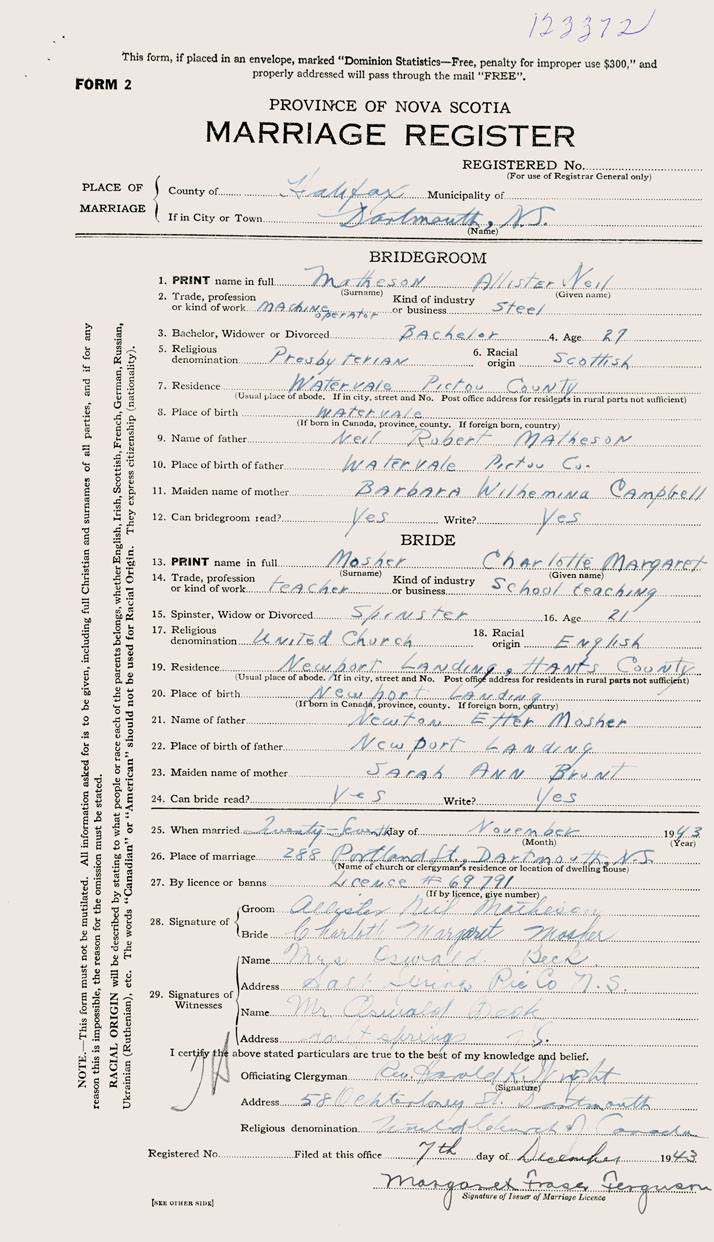 123372
This form, if placed in an envelope, marked "Dominion Statistics—Free, penalty for improper use $300," and
properly addressed will pass through the mail "FREE".
FORM 2
PROVINCE OF NOVA SCOTIA
MARRIAGE REGISTER
REGISTERED No.
(For use of Registrar General only)
PLACE OF MARRIAGE
County of Halifax Municipality of
If in City or Town Dartmouth, N.S.
(Name)
BRIDEGROOM
1. PRINT name in full Matheson Allister Neil
(Surname) (Given name)
2. Trade, profession or kind of work Machine operator Kind of industry or business Steel
3. Bachelor, Widower or Divorced Bachelor 4. Age 27
5. Religious denomination Presbyterian 6. Racial origin Scottish
7. Residence Watervale Pictou County
(Usual place of abode. If in city, street and No. Post office address for residents in rural parts not sufficient)
8. Place of birth Watervale
(If born in Canada, province, county. If foreign born, country)
9. Name of father Neil Robert Matheson
10. Place of birth of father Watervale Pictou Co.
11. Maiden name of mother Barbara Wilhemina Campbell
12. Can bridegroom read? Yes Write? Yes
BRIDE
13. PRINT name in full Mosher Charlotte Margaret
(Surname) (Given name)
14. Trade, profession or kind of work teacher Kind of industry or business School teaching
15. Spinster, Widow or Divorced Spinster 16. Age 21
17. Religious denomination United Church 18. Racial origin English
19. Residence Newport Landing, Hants County
(Usual place of abode. If in city, street and No. Post office address for residents in rural parts not sufficient)
20. Place of birth Newport Landing
(If born in Canada, province, county. If foreign born, country)
21. Name of father Newton Etter Mosher
22. Place of birth of father Newport Landing
23. Maiden name of mother Sarah Ann Brunt
24. Can bride read? Yes Write? Yes
25. When married Twenty-Seventh day of November 1943
(Month) (Year)
26. Place of marriage 288 Portland St., Dartmouth, N.S.
(Name of church or clergyman's residence or location of dwelling house)
27. By licence or banns Licence # 69791
(If by licence, give number)
28. Signature of
Groom Allister Neil Matheson
Bride Charlotte Margaret Mosher
29. Signatures of Witnesses
Name Mrs Oswald Beck
Address Salt Springs Pic Co N.S.
Name Mr Oswald Beck
Address Salt Springs N.S.
I certify the above stated particulars are true to the best of my knowledge and belief.
Officiating Clergyman Rev. Harold K. Wright
(Signature)
Address 58 Ochterloney St. Dartmouth
Religious denomination United Church of Canada
Registered No. Filed at this office 7th day of December 1943
Margaret Fraser Ferguson
Signature of Issuer of Marriage Licence
[SEE OTHER SIDE]
NOTE.—This form must not be mutilated. All information asked for is to be given, including full Christian and surnames of all parties, and if for any
reason this is impossible, the reason for the omission must be stated.
RACIAL ORIGIN will be described by stating to what people or race each of the parents belongs, whether English, Irish, Scottish, French, German, Russian,
Ukrainian (Ruthenian), etc. The words "Canadian" or "American" should not be used for Racial Origin. They express citizenship (nationality).